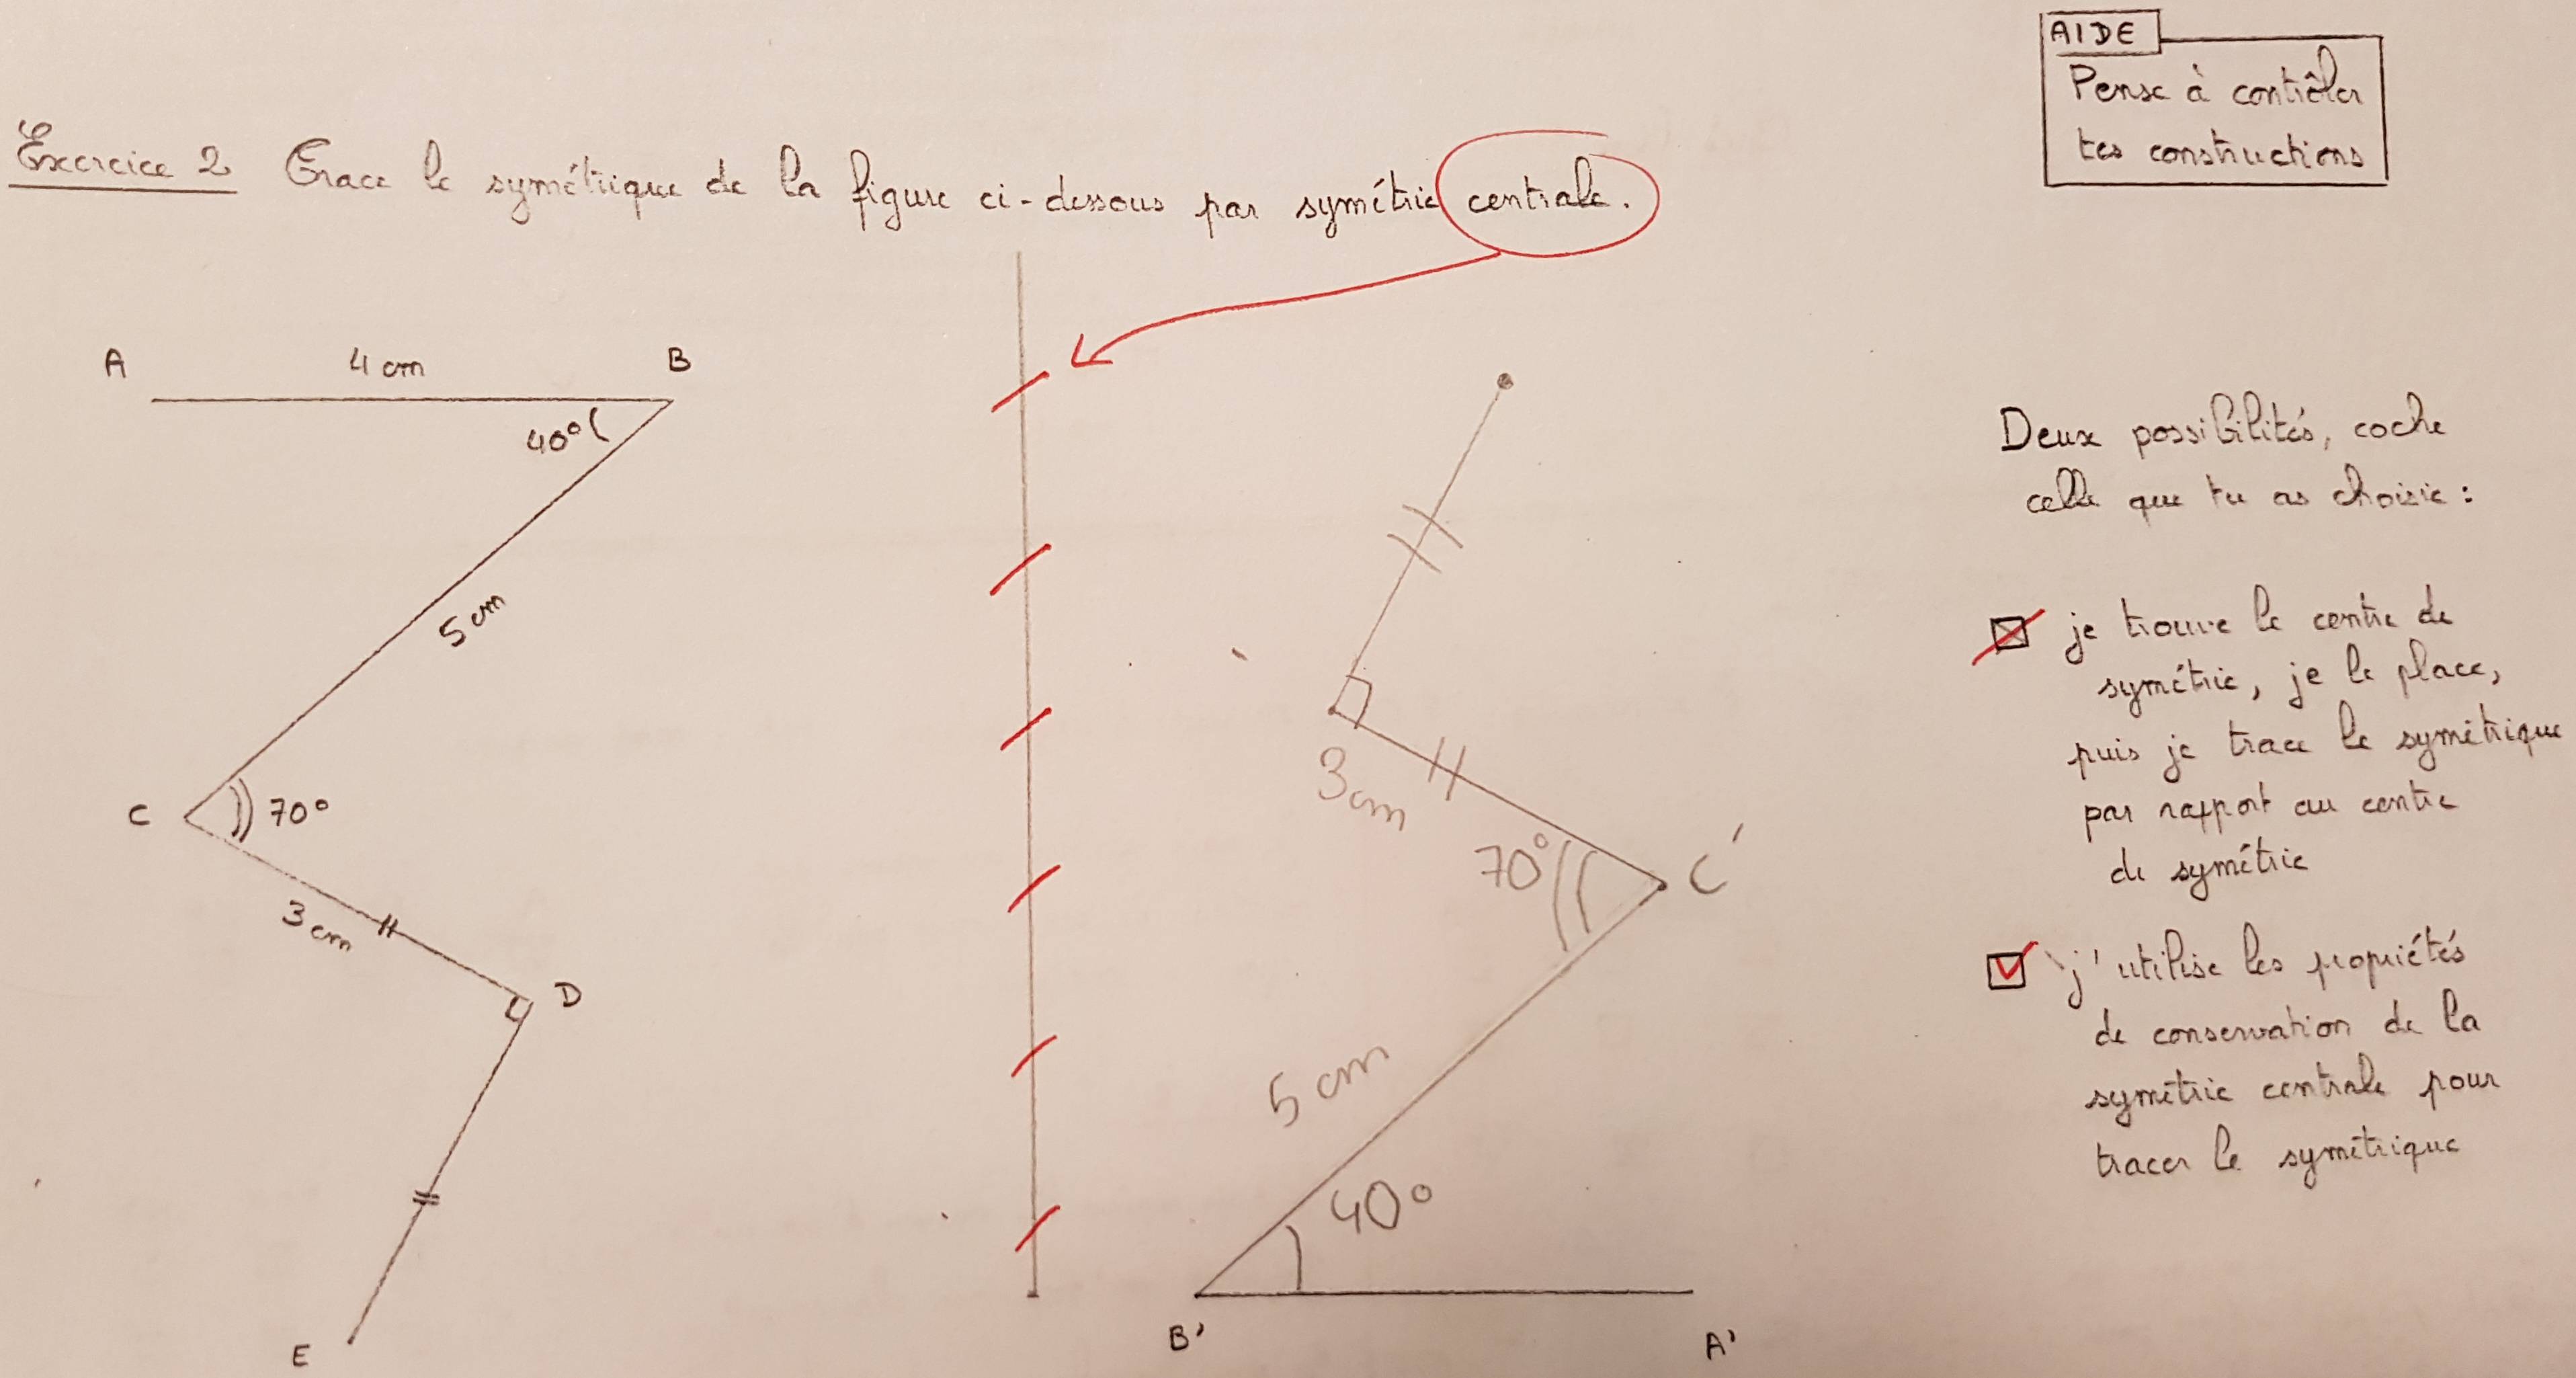 AIDE
Pense à contrôler
tes constructions
Exercice 2 Trace le symétrique de la figure ci-dessous par symétrie centrale.
A 4 cm B
40°
5 cm
C 70°
3 cm
D
E
3cm
70° C'
5 cm
40°
B' A'
Deux possibilités, coche
celle que tu as choisie :
je trouve le centre de
symétrie, je le place,
puis je trace le symétrique
par rapport au centre
de symétrie
j'utilise les propriétés
de conservation de la
symétrie centrale pour
tracer le symétrique